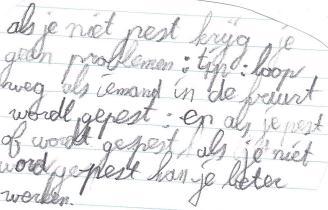 als je niet pest krijg je
geen problemen; tip: loop
weg als iemand in de buurt
wordt gepest; en als je pest
of wordt gepest als je niet
word ge-pest kan je beter
werken.